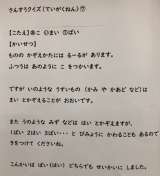 さんすうクイズ(ていがくねん)⑦
【こたえ】①こ ②まい ③ぱい
【かいせつ】
ものの かぞえかたには るーるが あります。
ふつうは あのように こ をつかいます。
ですが いのような うすいもの(かみ や かあど など)は
まい とかぞえることが おおいです。
また うのような みず などは はい とかぞえますが、
1ぱい 2はい 3ばい・・・と びみょうに かわることも あるので
きをつけて ください。
こんかいは ぱい はい どちらでも せいかいに しました。